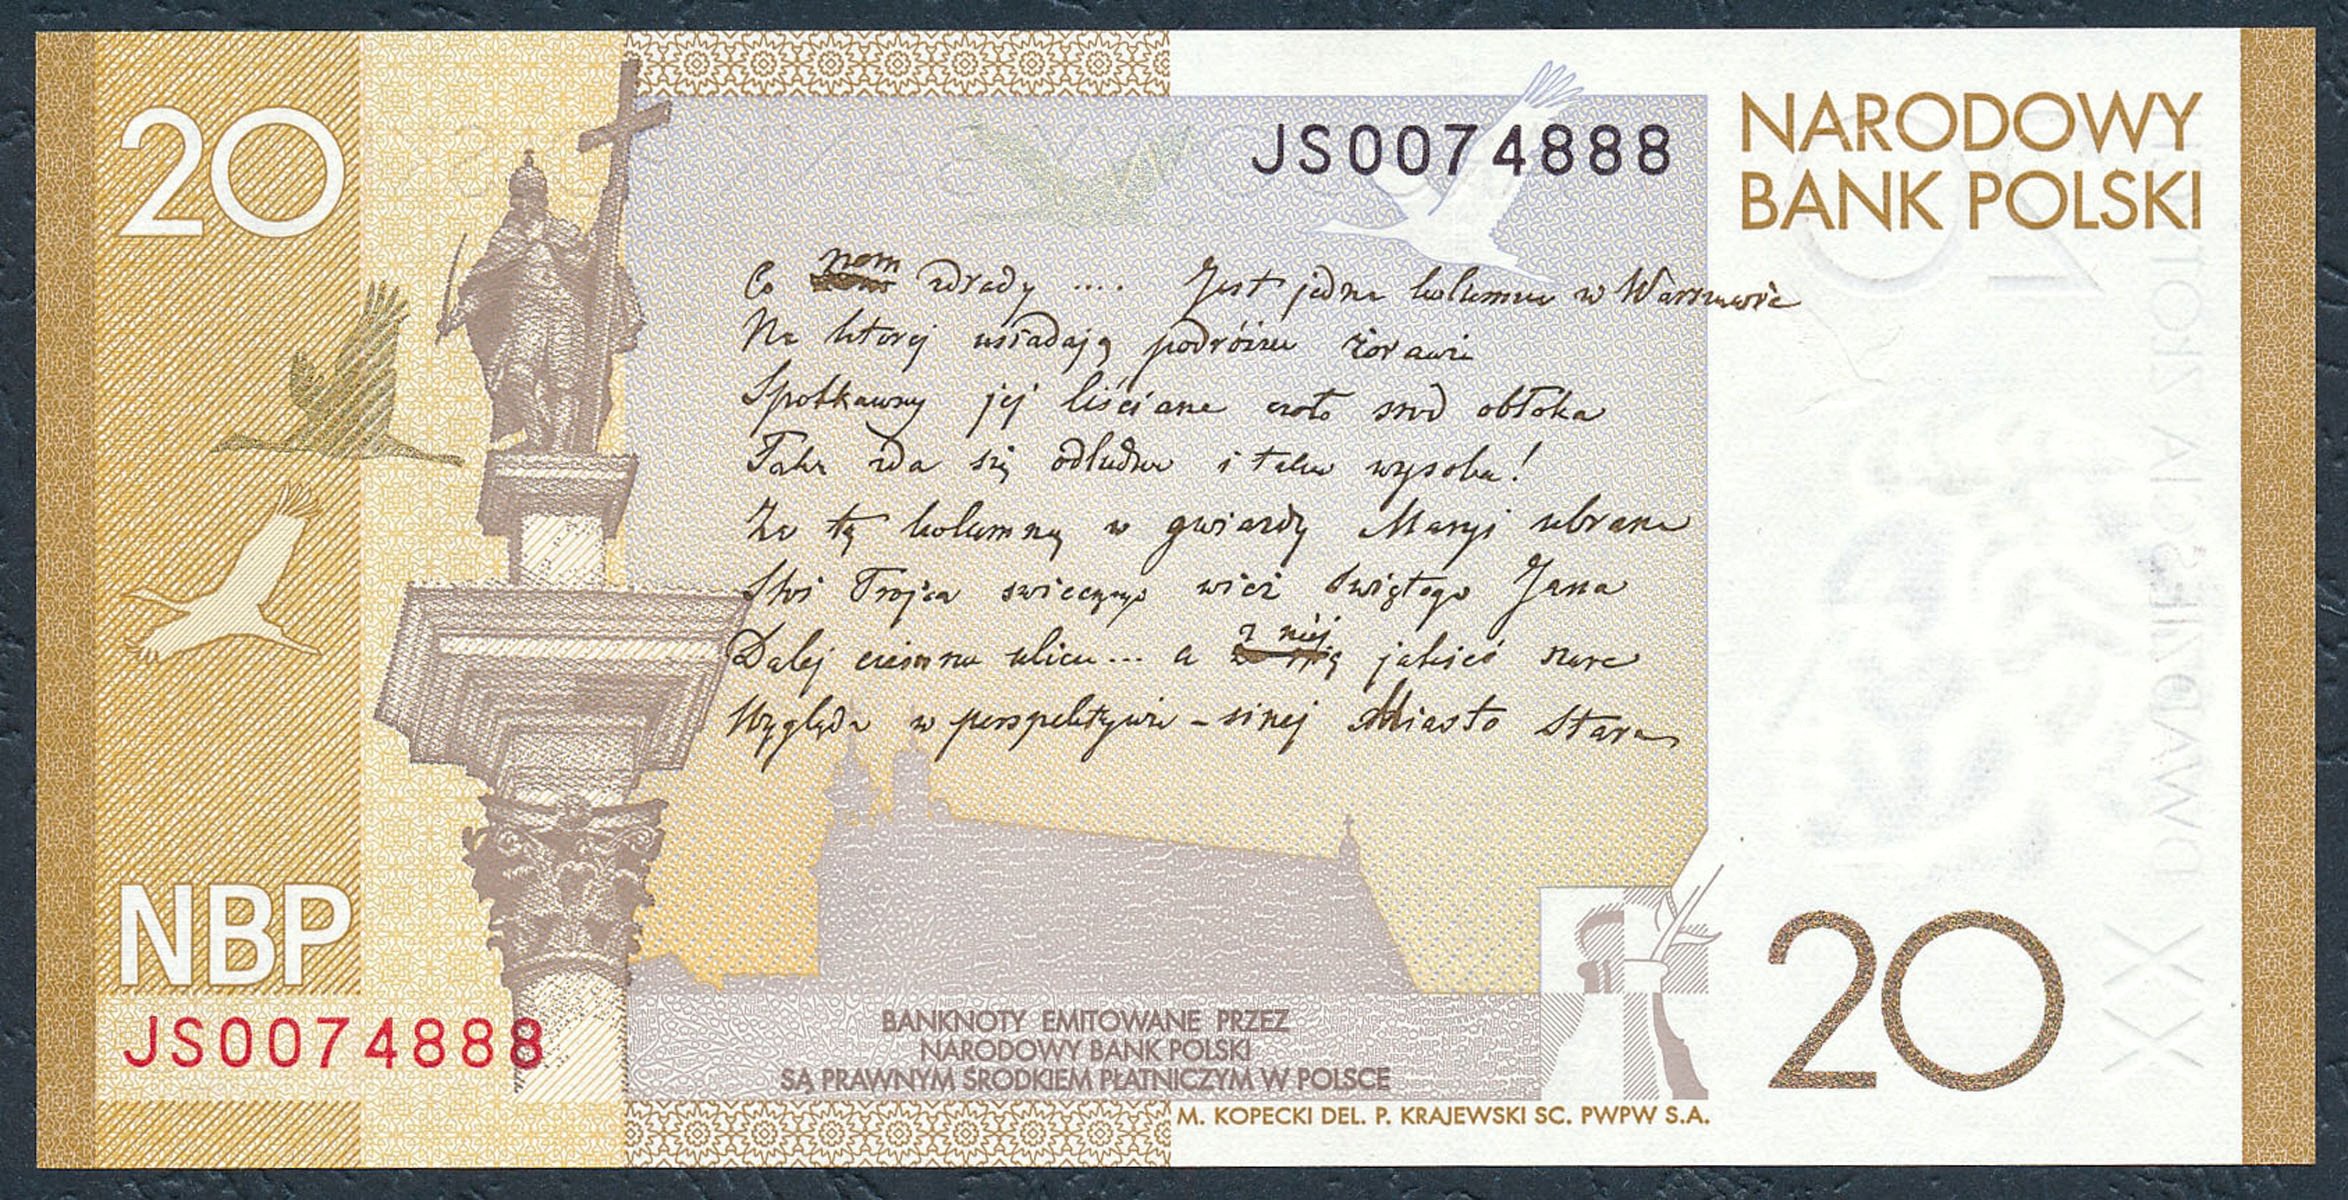 20
JS0074888
NARODOWY
BANK POLSKI
Co nam zdrady .... Jest jedna kolumna w Warszawie
Na ktorej usiadają podróżne żorawie
Spotkawszy jej liściane czoło srod obłoka
Taka zda się odludna i taka wysoka!
Za tą kolumną w gwiazdy Maryi ubrana
Stoi Trojca swiecznego wież Swiętego Jana
Dalej ciemna ulica... a z niéj jakieś szare
Wygląda w perspektywie - sinej Miasto Stare
NBP
JS0074888
BANKNOTY EMITOWANE PRZEZ
NARODOWY BANK POLSKI
SĄ PRAWNYM ŚRODKIEM PŁATNICZYM W POLSCE
20
M. KOPECKI DEL. P. KRAJEWSKI SC. PWPW S.A.